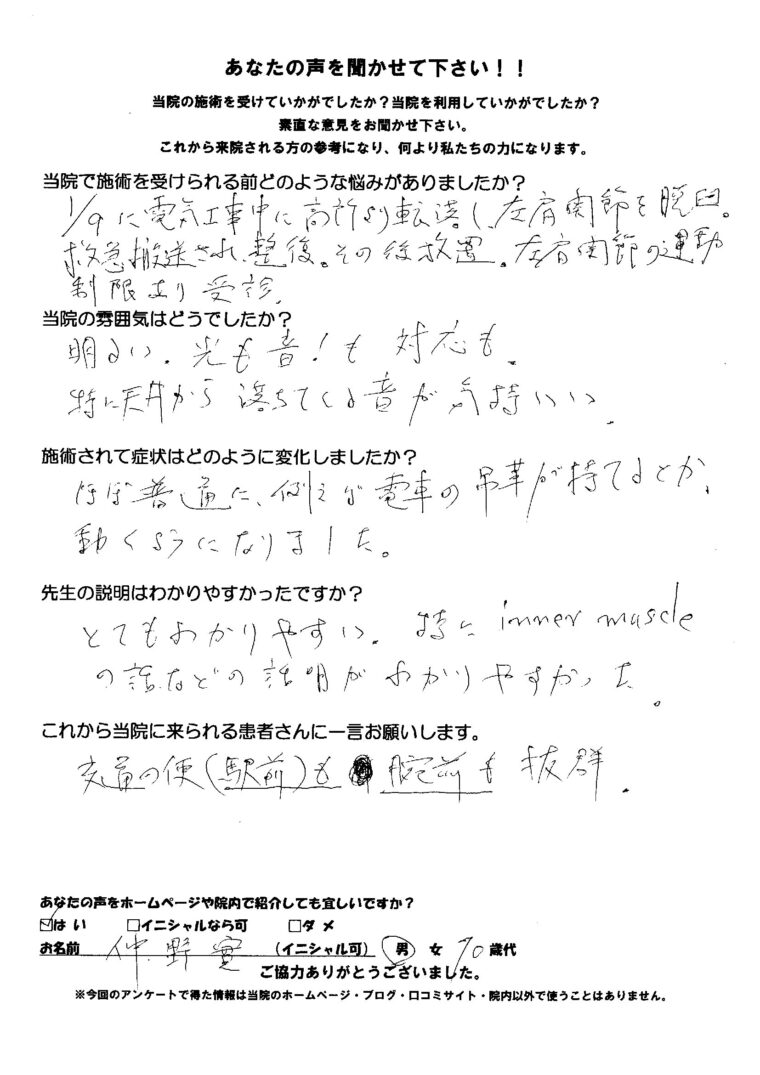 あなたの声を聞かせて下さい！！
当院の施術を受けていかがでしたか？当院を利用していかがでしたか？
素直な意見をお聞かせ下さい。
これから来院される方の参考になり、何より私たちの力になります。
当院で施術を受けられる前どのような悩みがありましたか？
1/9に電気工事中に高所より転落し、左肩関節を脱臼。
救急搬送され、整復。その後放置。左肩関節の運動
制限より受診。
当院の雰囲気はどうでしたか？
明るい。光も音！も 対応も。
特に天井から落ちてくる音が気持いい。
施術されて症状はどのように変化しましたか？
ほぼ普通に、例えば電車の吊革が持てるとか、
動くようになりました。
先生の説明はわかりやすかったですか？
とてもわかりやすい。特に inner muscle
の話などの説明がわかりやすかった。
これから当院に来られる患者さんに一言お願いします。
交通の便（駅前）も 腕前も 抜群。
あなたの声をホームページや院内で紹介しても宜しいですか？
☑はい □イニシャルなら可 □ダメ
お名前 仲野實 （イニシャル可） 男 女 70歳代
ご協力ありがとうございました。
※今回のアンケートで得た情報は当院のホームページ・ブログ・口コミサイト・院内以外で使うことはありません。